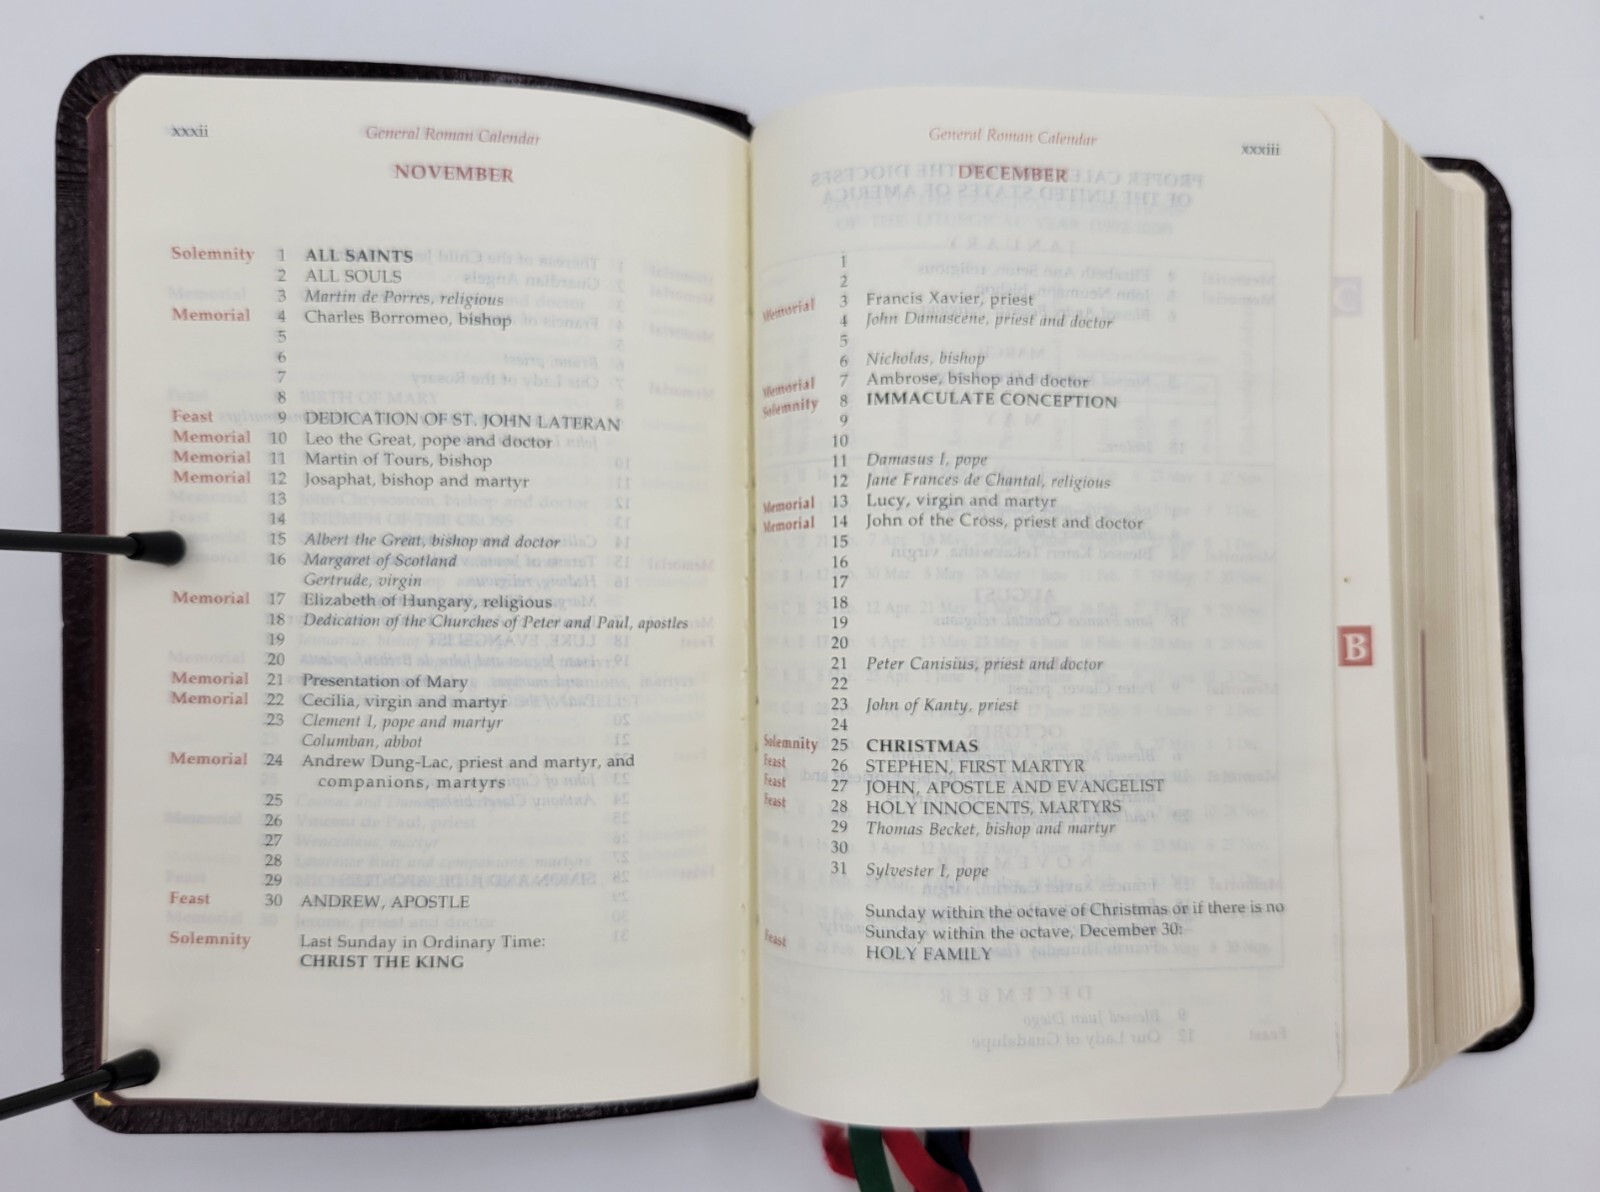 xxxii
General Roman Calendar
NOVEMBER
Solemnity 1 ALL SAINTS
2 ALL SOULS
3 Martin de Porres, religious
Memorial 4 Charles Borromeo, bishop
5
6
7
8
Feast 9 DEDICATION OF ST. JOHN LATERAN
Memorial 10 Leo the Great, pope and doctor
Memorial 11 Martin of Tours, bishop
Memorial 12 Josaphat, bishop and martyr
13
14
15 Albert the Great, bishop and doctor
16 Margaret of Scotland
Gertrude, virgin
Memorial 17 Elizabeth of Hungary, religious
18 Dedication of the Churches of Peter and Paul, apostles
19
20
Memorial 21 Presentation of Mary
Memorial 22 Cecilia, virgin and martyr
23 Clement I, pope and martyr
Columban, abbot
Memorial 24 Andrew Dung-Lac, priest and martyr, and
companions, martyrs
25
26
27
28
29
Feast 30 ANDREW, APOSTLE
Solemnity Last Sunday in Ordinary Time:
CHRIST THE KING
General Roman Calendar
xxxiii
DECEMBER
1
2
Memorial 3 Francis Xavier, priest
4 John Damascene, priest and doctor
5
6 Nicholas, bishop
Memorial 7 Ambrose, bishop and doctor
Solemnity 8 IMMACULATE CONCEPTION
9
10
11 Damasus I, pope
12 Jane Frances de Chantal, religious
Memorial 13 Lucy, virgin and martyr
Memorial 14 John of the Cross, priest and doctor
15
16
17
18
19
20
21 Peter Canisius, priest and doctor
22
23 John of Kanty, priest
24
Solemnity 25 CHRISTMAS
Feast 26 STEPHEN, FIRST MARTYR
Feast 27 JOHN, APOSTLE AND EVANGELIST
Feast 28 HOLY INNOCENTS, MARTYRS
29 Thomas Becket, bishop and martyr
30
31 Sylvester I, pope
Sunday within the octave of Christmas or if there is no
Sunday within the octave, December 30:
Feast HOLY FAMILY
C
B